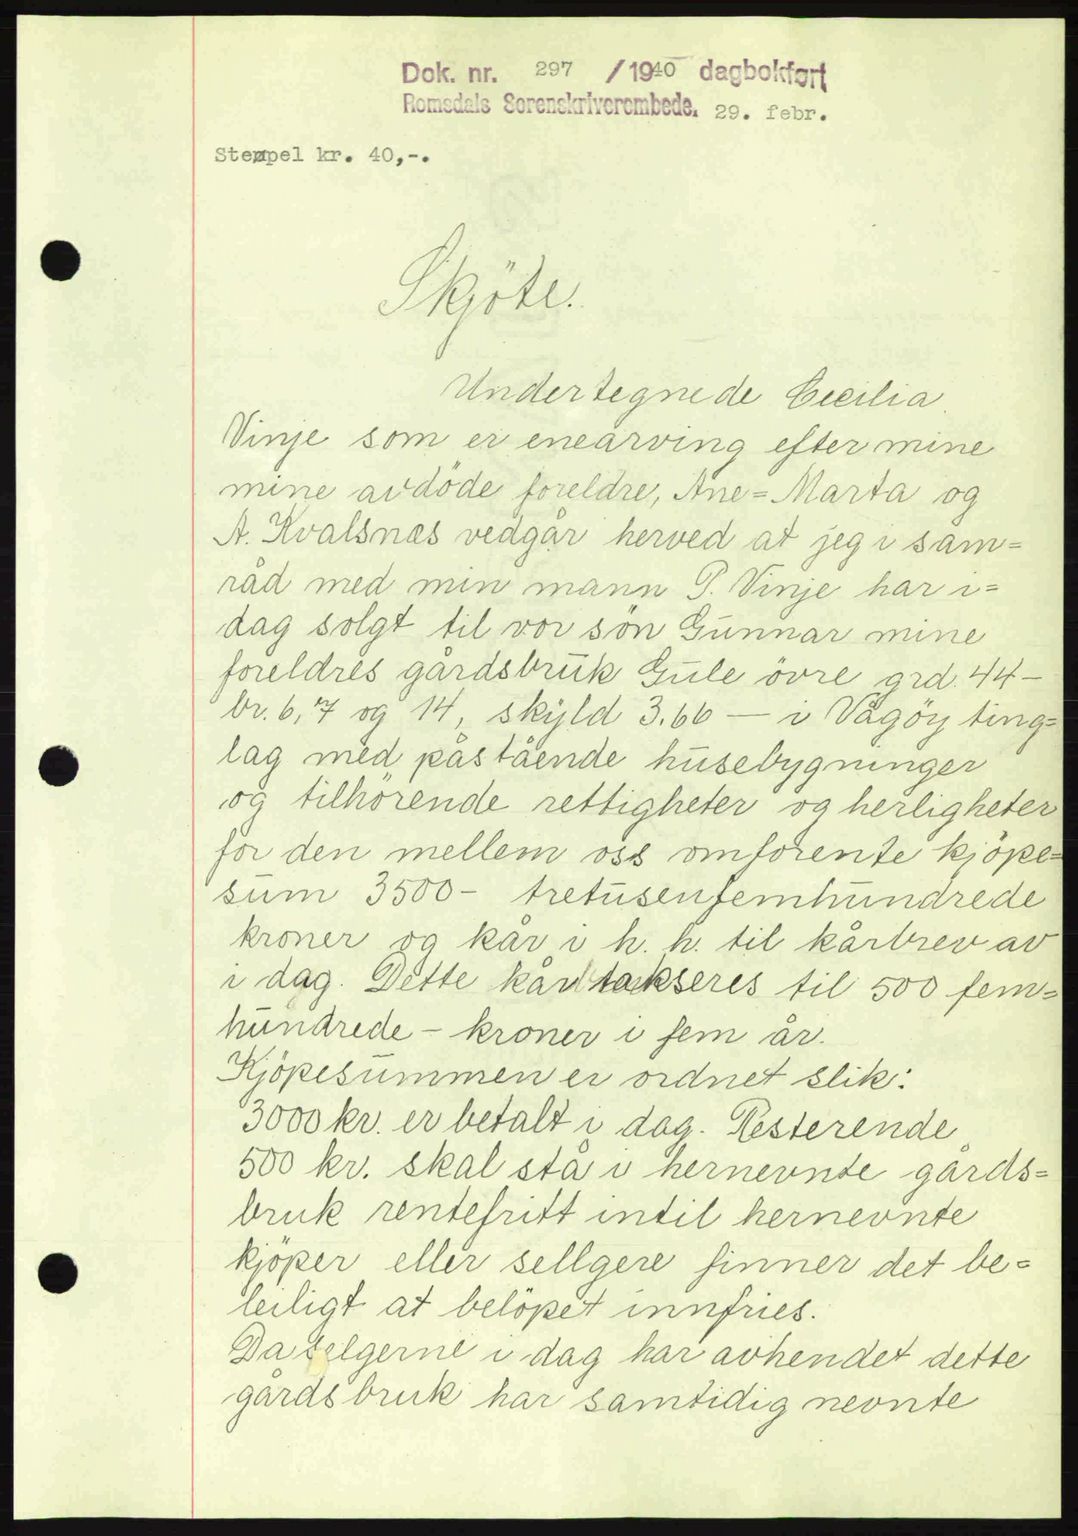 Dok. nr. 297 / 1940 dagbokført
Romsdals Sorenskriverembede. 29. febr.
Stempel kr. 40,-.
Skjöte.
Undertegnede Cecilia
Vinje som er enearving efter mine
mine avdöde foreldre, Ane=Marta og
A. Kvalsnæs vedgår herved at jeg i sam=
råd med min mann P. Vinje har i=
dag solgt til vor sön Gunnar mine
foreldres gårdsbruk Gule övre grd. 44-
br. 6, 7 og 14, skyld 3.66 — i Vågöy ting=
lag med påstående husebygninger
og tilhörende rettigheter og herligheter
for den mellem oss omforente kjöpe=
sum 3500 - tretusenfemhundrede
kroner og kår i h. h. til kårbrev av
i dag. Dette kår takseres til 500 fem=
hundrede - kroner i fem år.
Kjöpesummen er ordnet slik:
3000 kr. er betalt i dag. Resterende
500 kr. skal stå i hernevnte gårds=
bruk rentefritt intil hernevnte
kjöper eller sellgere finner det be=
leiligt at belöpet innfries.
Da selgerne i dag har avhendet dette
gårdsbruk har samtidig nevnte